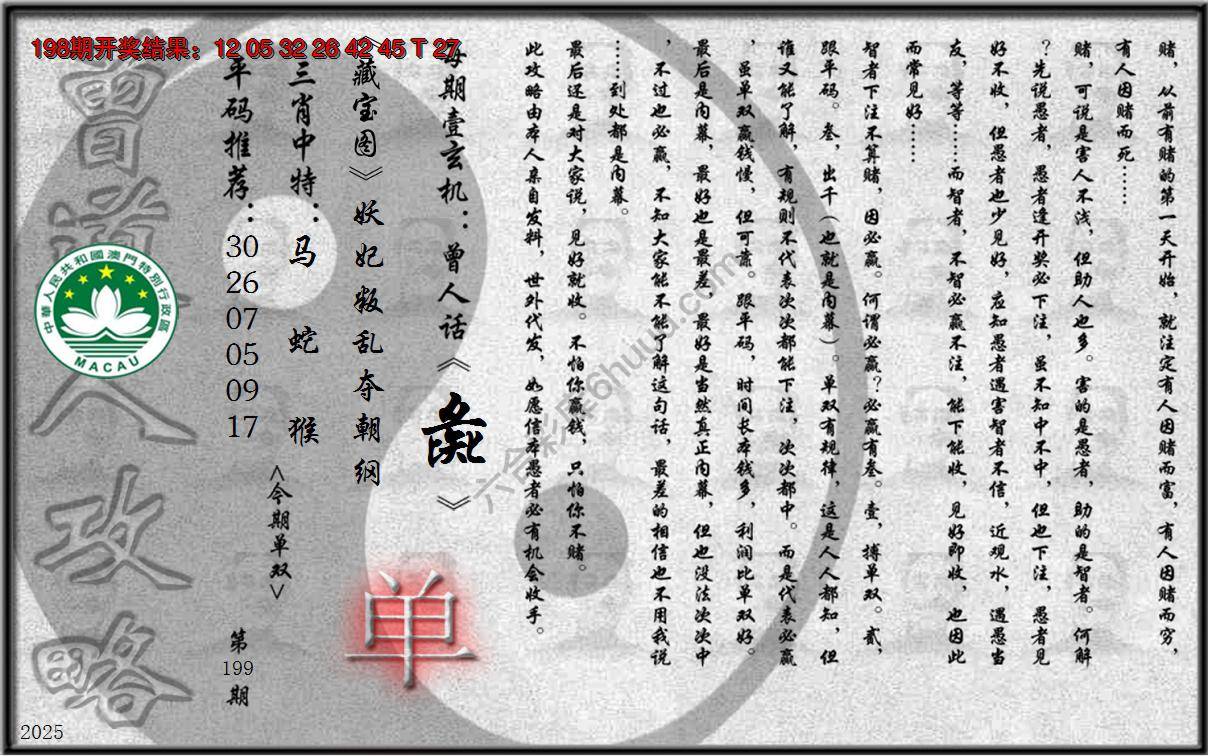 198期开奖结果：12 05 32 26 42 45 T 27
赌，从前有赌的第一天开始，就注定有人因赌而富，有人因赌而穷，
有人因赌而死……
赌，可说是害人不浅，但助人也多。害的是愚者，助的是智者。何解
？先说愚者，愚者逢开奖必下注，虽不知中不中，但也下注，愚者见
好不收，但愚者也少见好，应知愚者遇害智者不信，近观水，遇愚当
友，等等……而智者，不智必赢不注，能下能收，见好即收，也因此
而常见好……
智者下注不算赌，因必赢。何谓必赢？必赢有叁。壹，搏单双。贰，
跟平码。叁，出千（也就是内幕）。单双有规律，这是人人都知，但
谁又能了解，有规则不代表次次都能下注，次次都中。而是代表必赢
，虽单双赢钱慢，但可靠。跟平码，时间长本钱多，利润比单双好。
最后是内幕，最好也是最差，最好是当然真正内幕，但也没法次次中
，不过也必赢，不知大家能不能了解这句话，最差的相信也不用我说
……到处都是内幕。
最后还是对大家说，见好就收。不怕你赢钱，只怕你不赌。
此攻略由本人亲自发料，世外代发，如愿信本愚者必有机会收手。
每期壹玄机：曾人话《彘》
《藏宝图》妖妃叛乱夺朝纲
三肖中特：马 蛇 猴
平码推荐：30 26 07 05 09 17
<今期单双>
单
第199期
曾道人攻略
中華人民共和國澳門特別行政區
MACAU
六合彩库6huuu.com
2025